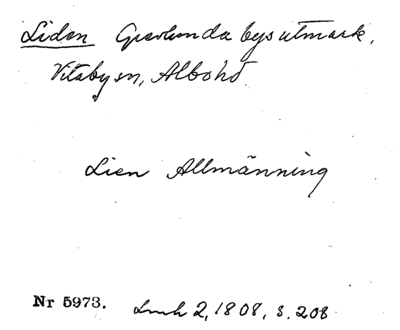 Liden Grevlunda bys utmark,
Vitaby sn, Albo hd.
Lien Allmänning
Nr 5973. Lmh 2, 1808, s. 208